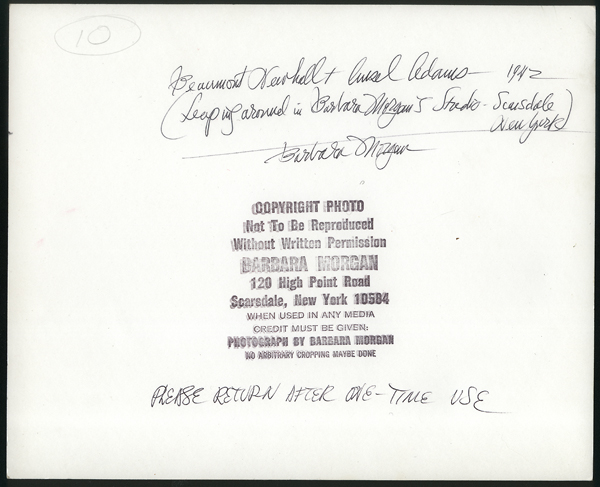 10
Beaumont Newhall + Ansel Adams - 1942
(Leaping around in Barbara Morgan's Studio - Scarsdale
New York)
Barbara Morgan
COPYRIGHT PHOTO
Not To Be Reproduced
Without Written Permission
BARBARA MORGAN
120 High Point Road
Scarsdale, New York 10584
WHEN USED IN ANY MEDIA
CREDIT MUST BE GIVEN:
PHOTOGRAPH BY BARBARA MORGAN
NO ARBITRARY CROPPING MAYBE DONE
PLEASE RETURN AFTER ONE-TIME USE